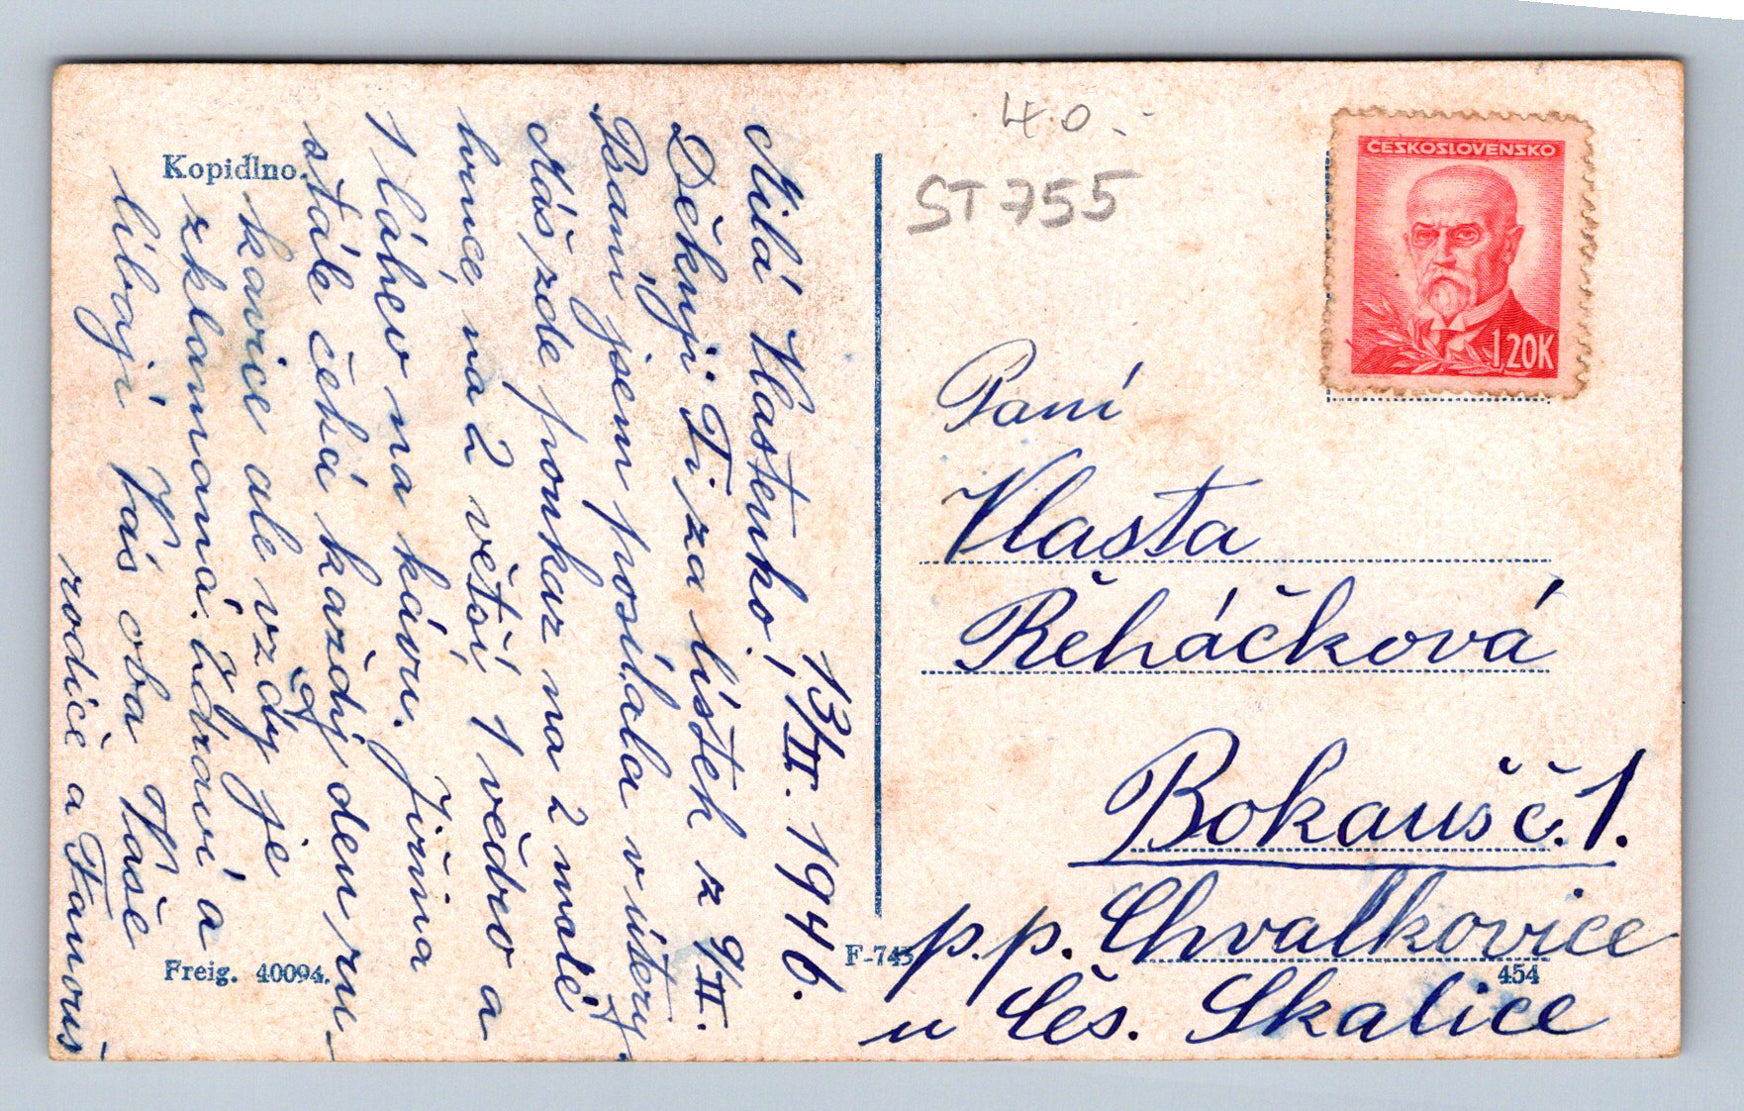 Kopidlno.
13/II. 1946.
Milá Vlastenko!
Děkuji Ti za lístek z 9/II.
Psaní jsem posílala v úterý.
Máš zde poukaz na 2 malé
hrnce, na 2 větší, 1 vědro a
1 láhev na kávu. Jiřina
stále čeká každý den ru-
kavice ale vždy je
zklamaná. Zdraví a
líbají Vás oba Vaše
rodiče a
Freig. 40094.
F-745
40.-
ST 755
ČESKOSLOVENSKO
1,20K
Paní
Vlasta
Řeháčková
Bokauš č. 1.
p.p. Chvalkovice
u Čes. Skalice
454